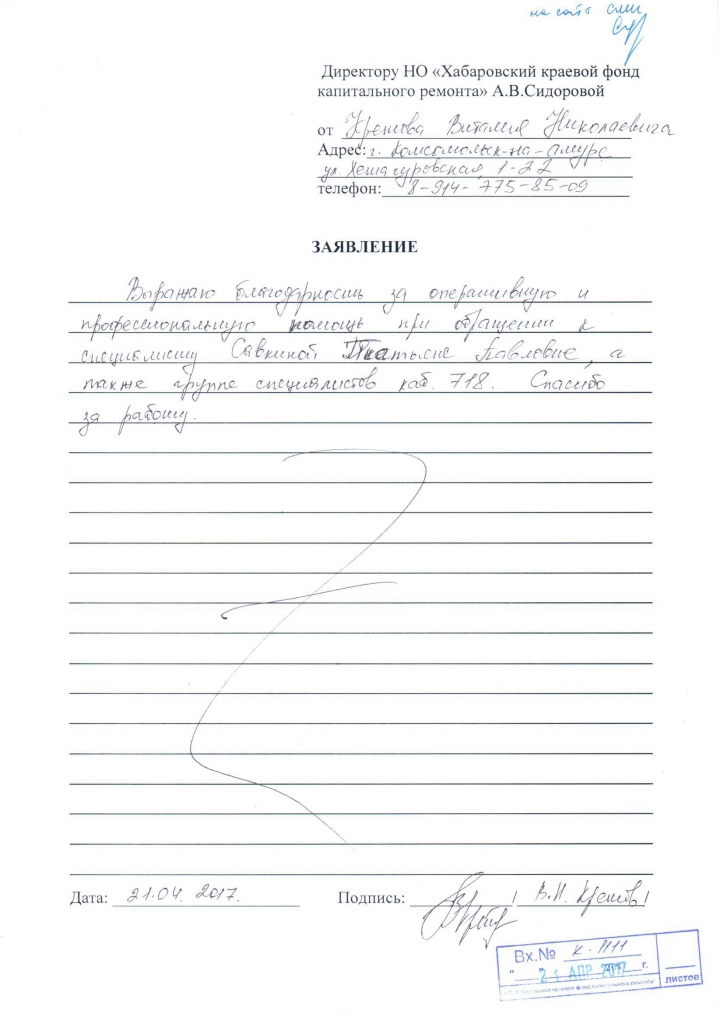 на сайт сми
Директору НО «Хабаровский краевой фонд
капитального ремонта» А.В.Сидоровой
от Кретова Виталия Николаевича
Адрес: г. Комсомольск-на-Амуре
ул. Хетагуровская, 1-22
телефон: 8-914-775-85-09
ЗАЯВЛЕНИЕ
Выражаю благодарность за оперативную и
профессиональную помощь при обращении к
специалисту Савкиной Татьяне Павловне, а
также группе специалистов каб. 718. Спасибо
за работу.
Дата: 21.04. 2017. Подпись: / В.Н. Кретов /
Вх.№ К-1111
" 21 АПР 2017 г.
листов